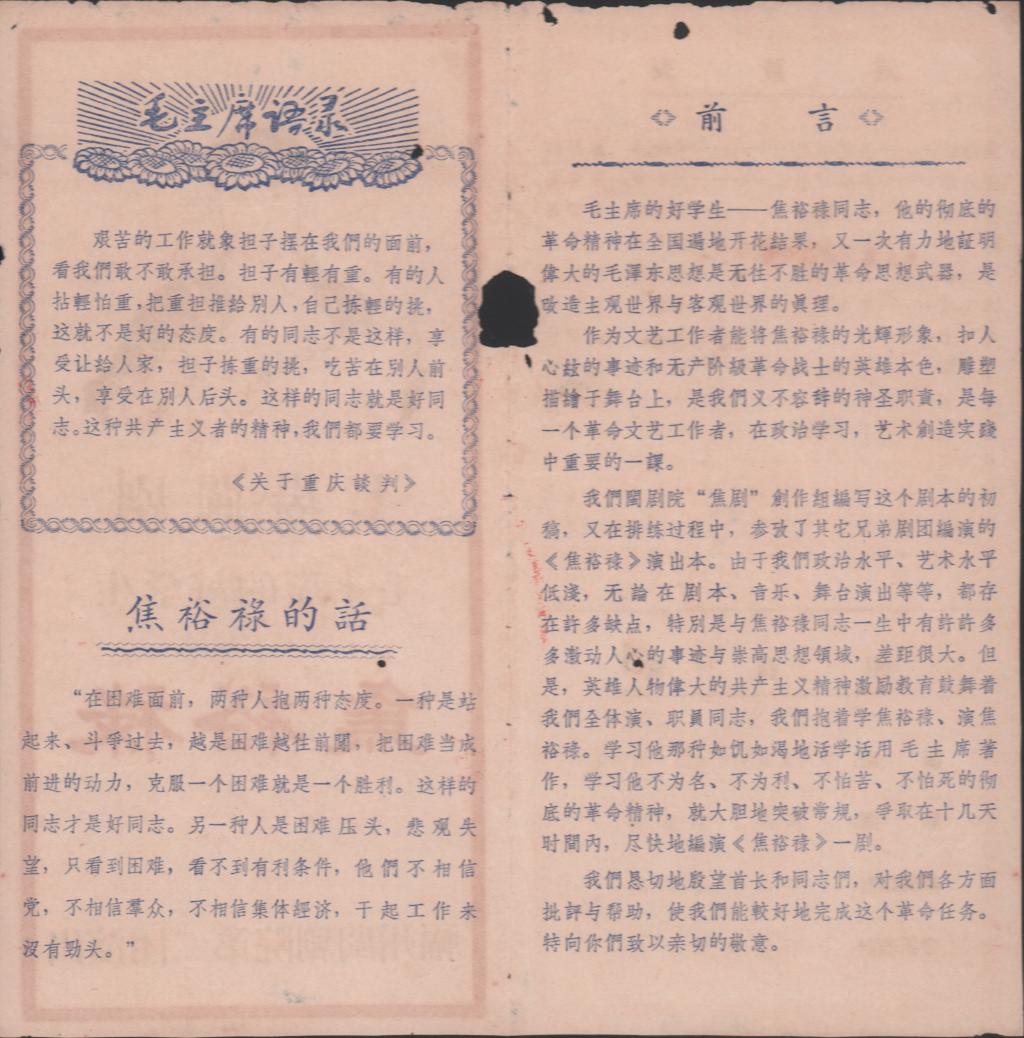 毛主席语录
艰苦的工作就象担子摆在我們的面前，
看我們敢不敢承担。担子有輕有重。有的人
拈輕怕重，把重担推給別人，自己拣輕的挑，
这就不是好的态度。有的同志不是这样，享
受让給人家，担子拣重的挑，吃苦在別人前
头，享受在別人后头。这样的同志就是好同
志。这种共产主义者的精神，我們都要学习。
《关于重庆談判》
焦裕祿的話
“在困难面前，两种人抱两种态度。一种是站
起来、斗爭过去，越是困难越往前闖，把困难当成
前进的动力，克服一个困难就是一个胜利。这样的
同志才是好同志。另一种人是困难压头，悲观失
望，只看到困难，看不到有利条件，他們不相信
党，不相信羣众，不相信集体經济，干起工作来
沒有勁头。”
前言
毛主席的好学生——焦裕祿同志，他的彻底的
革命精神在全国遍地开花結果，又一次有力地証明
偉大的毛澤东思想是无往不胜的革命思想武器，是
改造主观世界与客观世界的眞理。
作为文艺工作者能将焦裕祿的光輝形象，扣人
心絃的事迹和无产阶級革命战士的英雄本色，雕塑
描繪于舞台上，是我們义不容辞的神圣职責，是每
一个革命文艺工作者，在政治学习，艺术創造实踐
中重要的一課。
我們閩剧院“焦剧”創作組編写这个剧本的初
稿，又在排练过程中，参攷了其它兄弟剧团編演的
《焦裕祿》演出本。由于我們政治水平、艺术水平
低淺，无論在剧本、音乐、舞台演出等等，都存
在許多缺点，特別是与焦裕祿同志一生中有許許多
多激动人心的事迹与崇高思想領域，差距很大。但
是，英雄人物偉大的共产主义精神激励教育鼓舞着
我們全体演、职員同志，我們抱着学焦裕祿、演焦
裕祿。学习他那种如饥如渴地活学活用毛主席著
作，学习他不为名、不为利、不怕苦、不怕死的彻
底的革命精神，就大胆地突破常規，爭取在十几天
时間內，尽快地編演《焦裕祿》一剧。
我們恳切地殷望首长和同志們，对我們各方面
批評与帮助，使我們能較好地完成这个革命任务。
特向你們致以亲切的敬意。